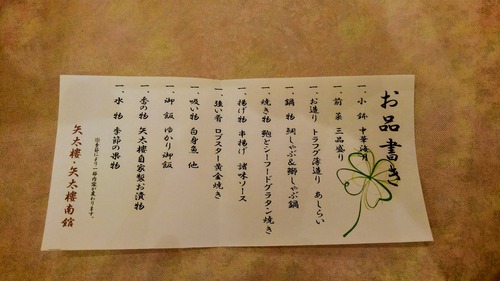 お品書き
一、小鉢 中華海月
一、前菜 三品盛り
一、お造り トラフグ薄造り あしらい
一、鍋物 鯛しゃぶ&鰤しゃぶ鍋
一、焼き物 鮑とシーフードグラタン焼き
一、揚げ物 串揚げ 諸味ソース
一、強い肴 ロブスター黄金焼き
一、吸い物 白身魚 他
一、御飯 ゆかり御飯
一、香の物 矢太樓自家製お漬物
一、水物 季節の果物
※季節により一部内容が変わります。
矢太樓・矢太樓南館